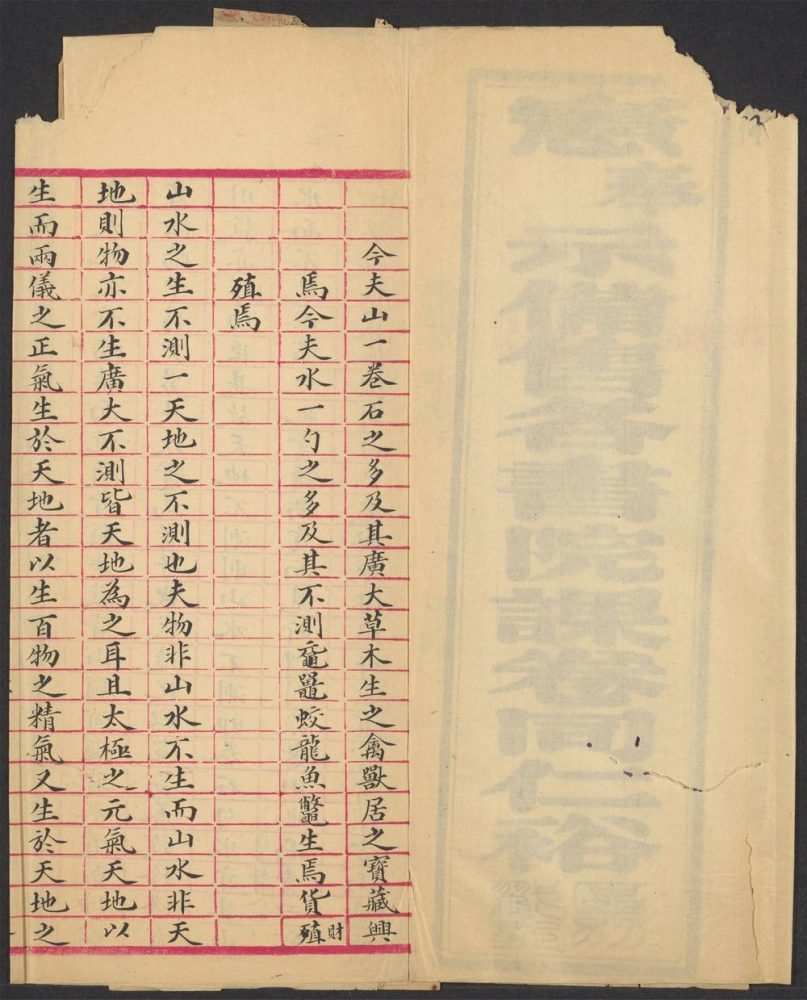 奉憲示備售各書院課卷同仁裕
今夫山一卷石之多及其廣大草木生之禽獸居之寶藏興
焉今夫水一勺之多及其不測黿鼉蛟龍魚鱉生焉貨財殖
殖焉
山水之生不測一天地之不測也夫物非山水不生而山水非天
地則物亦不生廣大不測皆天地為之耳且太極之元氣天地以
生而兩儀之正氣生於天地者以生百物之精氣又生於天地之